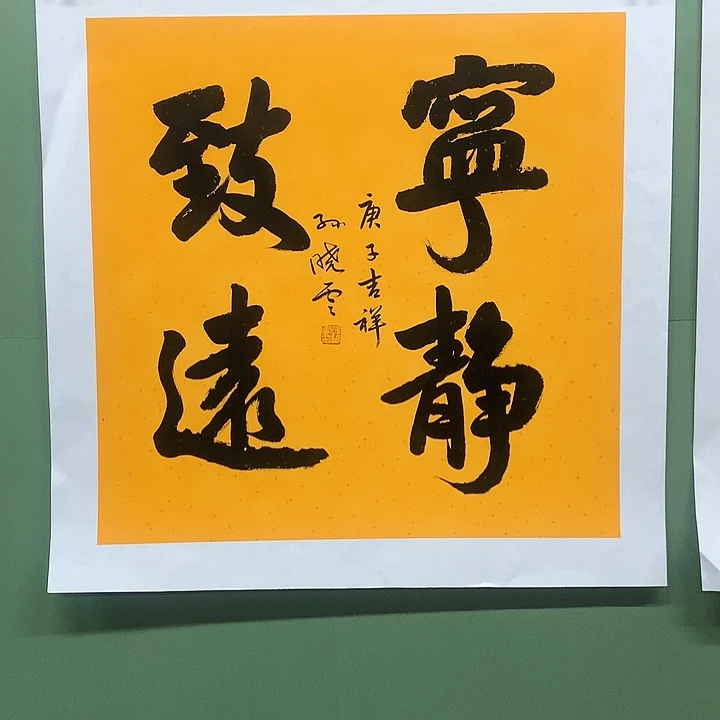 寧靜
致遠
庚子吉祥
孫晓雲